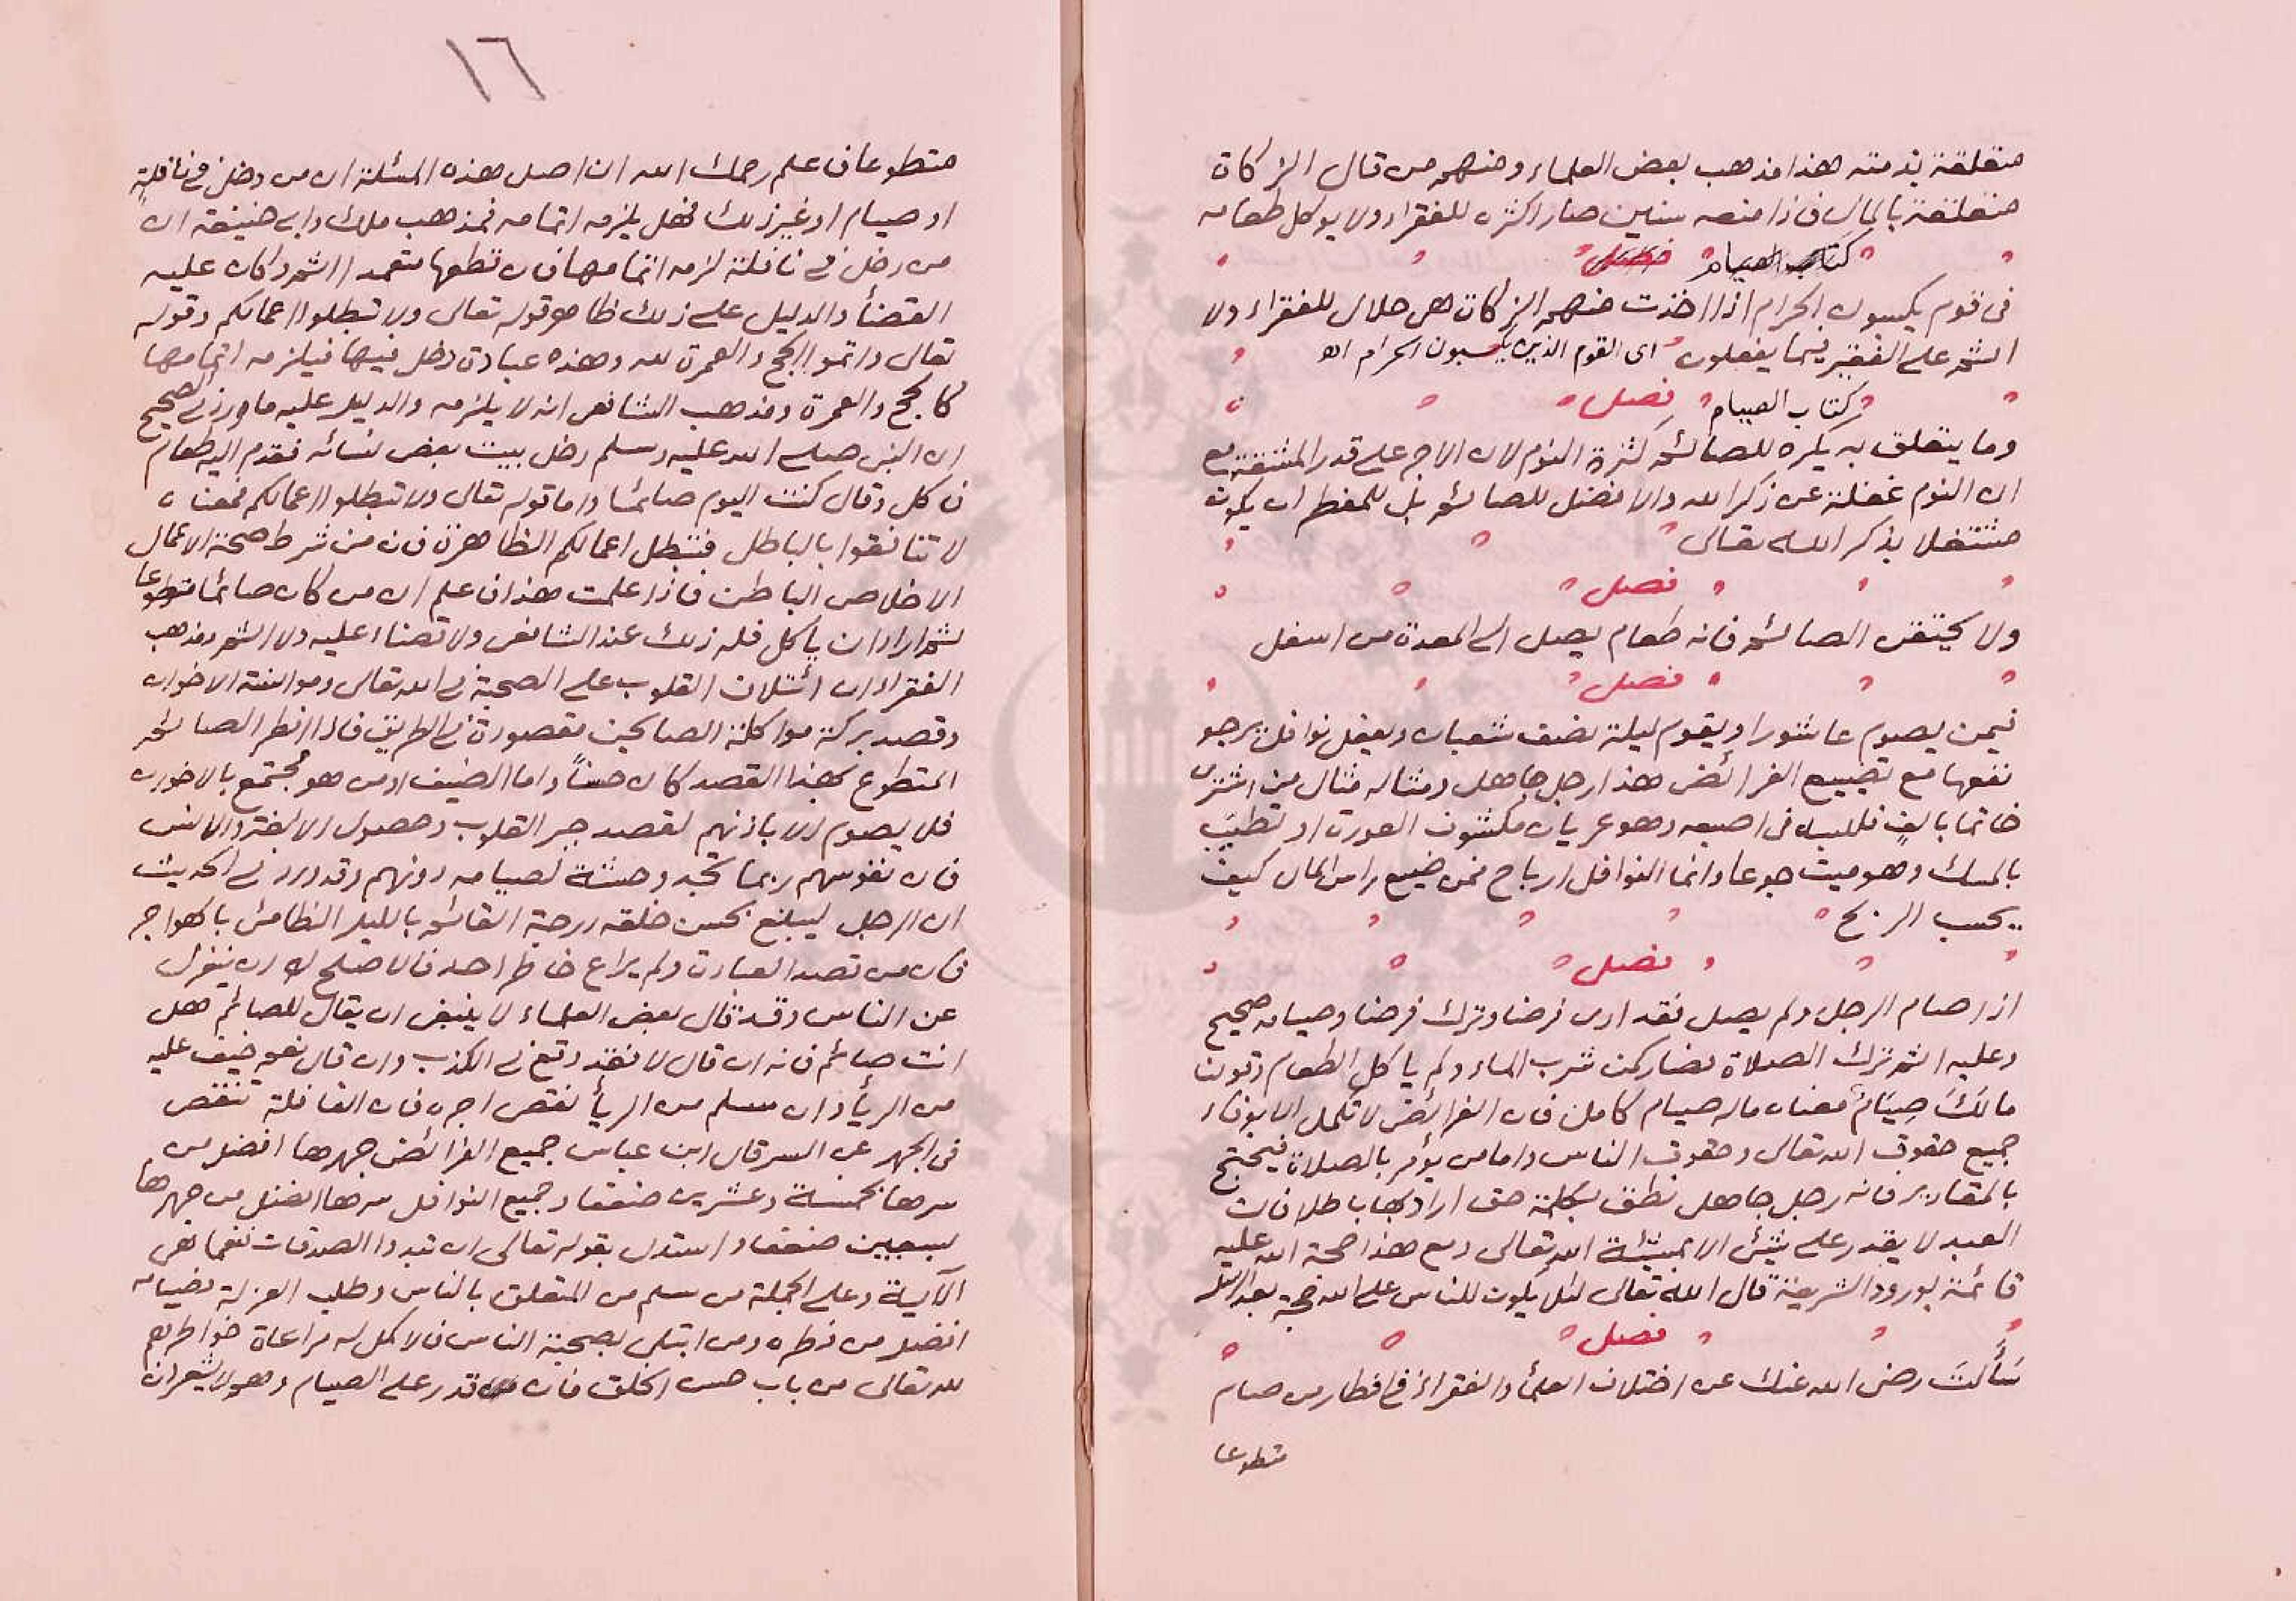 متعلقة بذمته هذا مذهب بعض العلماء ومنهم من قال الزكاة
متعلقة بالمال فاذا منعه سنين صار اكثره للفقراء ولا يوكل طعامه
كتاب الصيام فصل
فى قوم يكسبون الحرام اذا اخذت منهم الزكاة هى حلال للفقراء ولا
اثم على الفقير فيما يفعلون اى القوم الذين يكسبون الحرام اه
كتاب الصيام فصل
وما يتعلق به يكره للصائم كثرة النوم لان الاجر على قدر المشقة مع
ان النوم غفلة عن ذكر الله والافضل للصائم بل للمفطر ان يكون
مشتغلا بذكر الله تعالى
فصل
ولا يحتقن الصائم فانه طعام يصل الى المعدة من اسفل
فصل
فيمن يصوم عاشورا ويقوم ليلة نصف شعبان ويفعل نوافل يرجو
نفعها مع تضييع الفرائض هذا رجل جاهل ومثاله مثال من اشترى
خاتما بالف فلبسه فى اصبعه وهو عريان مكشوف العورة او تطيب
بالمسك وهو ميت جوعا وانما النوافل ارباح فمن ضيع راس المال كيف
يحسب الربح
فصل
اذا صام الرجل ولم يصل فقد ادى فرضا وترك فرضا وصيامه صحيح
وعليه اثم ترك الصلاة فصار كمن شرب الماء ولم ياكل الطعام وقولنا
مالَكَ صِيَام معناه ماله صيام كامل فان الفرائض لا تكمل الا بوفاء
جميع حقوق الله تعالى وحقوق الناس واما من يؤمر بالصلاة فيحتج
بالمقادير فانه رجل جاهل نطق بكلمة حق اراد بها باطلا فان
العبد لا يقدر على شئ الا بمشيئة الله تعالى ومع هذا حجة الله عليه
قائمة بورود الشريعة قال الله تعالى لئلا يكون للناس على الله حجة بعد الرسل
فصل
سَأَلتَ رضى الله عنك عن اختلاف العلمأ والفقراء فى افطار من صام
متطوعا
١٦
متطوعا فاعلم رحمك الله ان اصل هذه المسئلة ان من دخل فى نافلة
او صيام او غير ذلك فهل يلزمه اتمامه فمذهب ملك وابى حنيفة ان
من دخل فى نافلة لزمه اتمامها فان قطعها متعمدا اثم وكان عليه
القضأ والدليل على ذلك ظاهر قوله تعالى ولا تبطلوا اعمالكم وقوله
تعالى واتموا الحج والعمرة لله وهذه عبادة دخل فيها فيلزمه اتمامها
كالحج والعمرة ومذهب الشافعى انه لا يلزمه والدليل عليه ما ورد فى الصحيح
ان النبى صلى الله عليه وسلم دخل بيت بعض نسائه فقدم اليه طعام
فاكل وقال كنت اليوم صائما واما قوله تعالى ولا تبطلوا اعمالكم فمعناه
لا تنافقوا بالباطل فتبطل اعمالكم الظاهرة فان من شرط صحة الاعمال
الاخلاص الباطن فاذا علمت هذا فاعلم ان من كان صائما متطوعا
ثم اراد ان ياكل فله ذلك عند الشافعى ولا قضاء عليه ولا اثم ومذهب
الفقراء ان ائتلاف القلوب على الصحبة فى الله تعالى وموافقة الاخوان
وقصد بركة مواكلة الصالحين مقصودة فى الطريق فاذا افطر الصائم
المتطوع بهذا القصد كان حسناً واما الضيف او من هو مجتمع بالاخوان
فلا يصوم الا باذنهم لقصد جبر القلوب وحصول الالفة والانس
فان نفوسهم ربما تجد وحشة لصيامه دونهم وقد ورد فى الحديث
ان الرجل ليبلغ بحسن خلقه درجة القائم بالليل الظامئ بالهواجر
فان من قصد العبادة ولم يراع خاطر احد فالاصلح له ان ينعزل
عن الناس وقد قال بعض العلماء لا ينبغى ان يقال للصائم هل
انت صائم فانه ان قال لا فقد وقع فى الكذب وان قال نعم خيف عليه
من الريأ وان سلم من الريأ نقص اجره فان النافلة تنقص
فى الجهر عن السر قال ابن عباس جميع الفرائض جهرها افضل من
سرها بخمسة وعشرين ضعفا وجميع النوافل سرها افضل من جهرها
بسبعين ضعفا واستدل بقوله تعالى ان تبدوا الصدقات فنعما هى
الآية وعلى الجملة من سلم من المتعلق بالناس وطلب العزلة فصيامه
افضل من فطره ومن ابتلى بصحبة الناس فالاكمل له مراعاة خواطرهم
لله تعالى من باب حسن الخلق فان قدر على الصيام وهم لا يشعرون